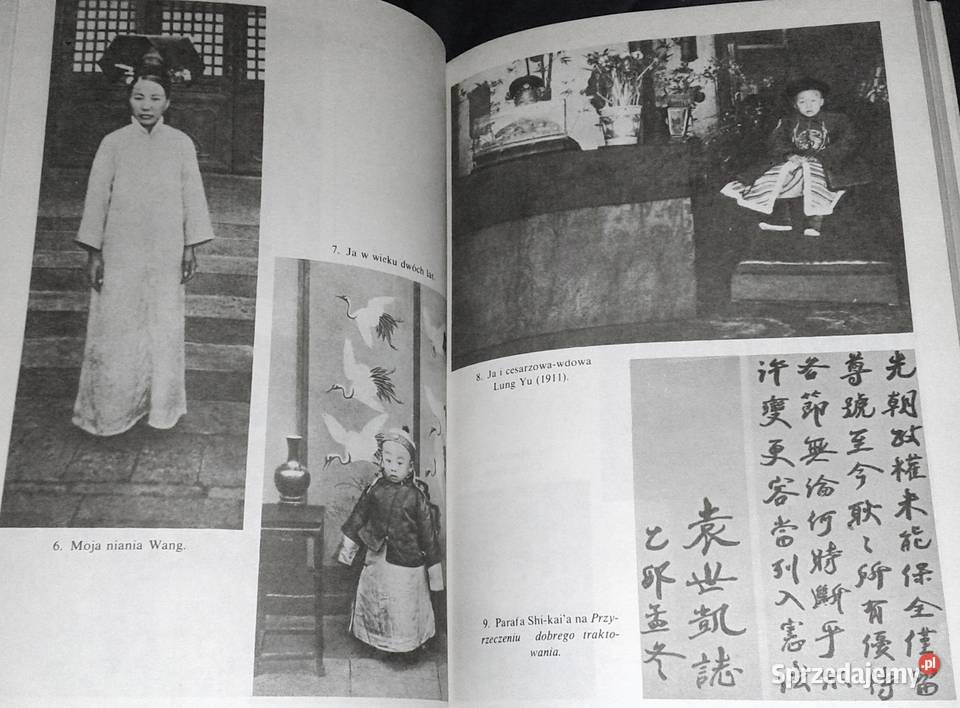 6. Moja niania Wang.
7. Ja w wieku dwóch lat.
8. Ja i cesarzowa-wdowa
Lung Yu (1911).
9. Parafa Shi-kai'a na Przy-
rzeczeniu dobrego trakto-
wania.
先朝政權未能保全僅留
尊號至今耿〻所有優待
各節無論何時斷乎不
許變更容當列入憲法
袁世凱誌
乙卯孟冬
Sprzedajemy.pl